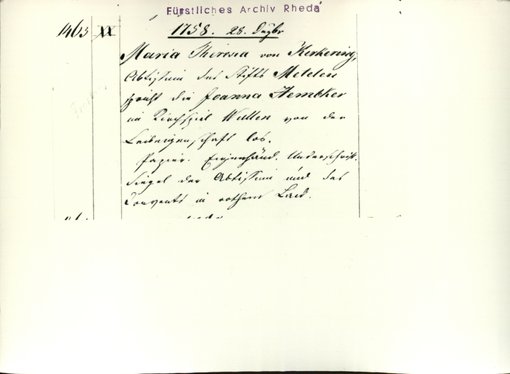 Fürstliches Archiv Rheda
1463 XX 1758. 28. Dezbr
Maria Theresia von Kerkering,
Äbtissin des Stifts Metelen
spricht die Joanna Hemkker
im Kirchspiel Wullen von der
Leibeigenschaft los.
Papier. Eigenhänd. Unterschrift.
Siegel der Äbtissin und des
Convents in rothem Lack.